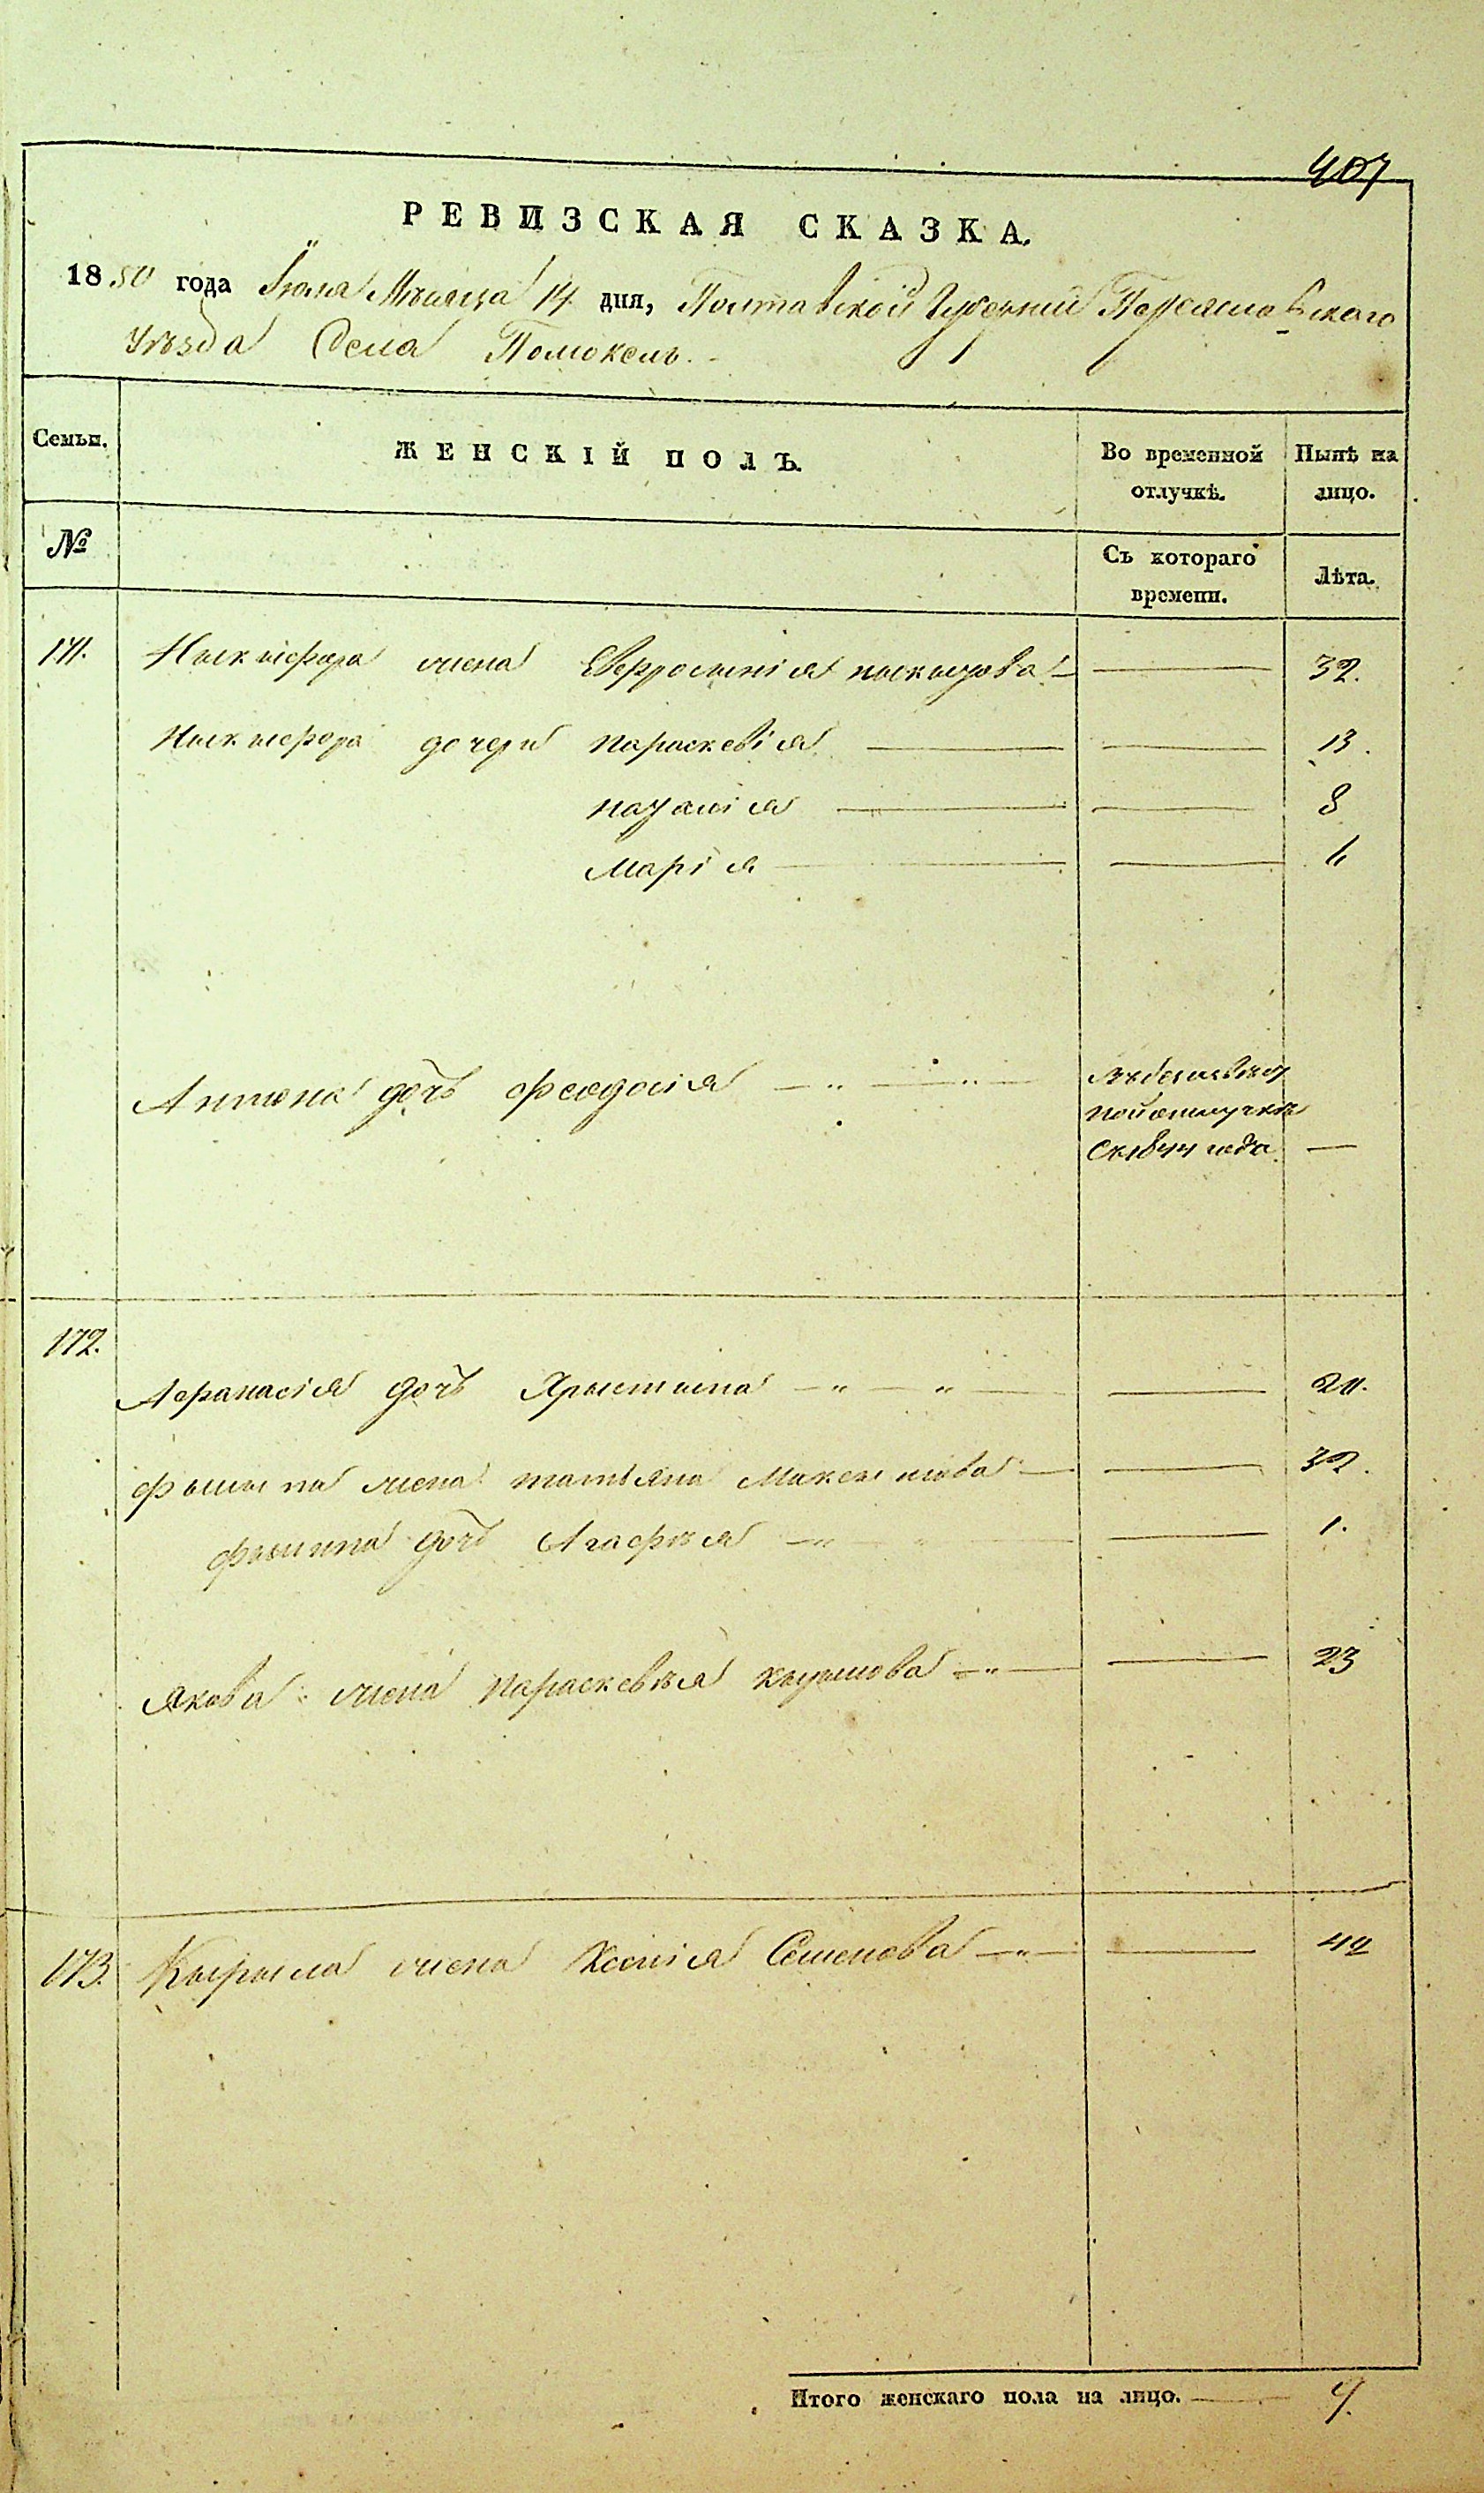 407
РЕВИЗСКАЯ СКАЗКА.
1850 года Іюля Мѣсяца 14 дня, Полтавской Губерніи Переяславского
уѣзда Села Помокель.
Семьи. ЖЕНСКІЙ ПОЛЪ. Во временной отлучкѣ. Нынѣ на лицо.
№ Съ котораго времени. Лѣта.
171. Ныкыфора жена Евфросынія — 32.
Ныкыфора дочери Параскевія — — 13.
Наталія — — 8
Марія — — 6
Антона дочь Феодосія — " — " —
отлучкѣ
Съ 1844 года. —
172.
Афанасія дочь Хрыстына — " — " — — 20.
Филипа жена татьяна Максимова — — 32.
Филипа дочь Агафія — " — " — — 1.
Якова жена Параскевія — " — — 23
173. Кырыла жена Ксенія Семенова — " — — 42
Итого женскаго пола на лицо. — 9.